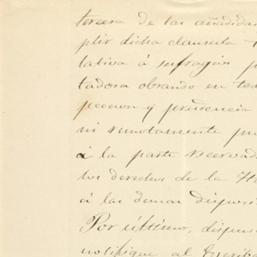 tercera de las añadidas
plir dicha clausula
tativa á sufragar p
tadora obrando en tes
peccion y prudencia
ni remotamente pu
á la parte reservad
los derechos de la H
á las demas disposi
Por último, dispus
notifique al Escriba